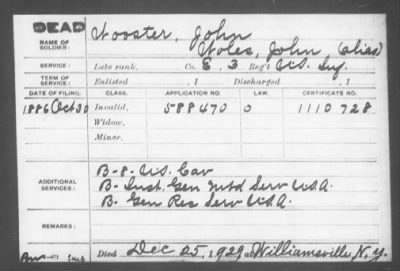 DEAD
NAME OF SOLDIER: Wooster, John
Noles, John (alias)
SERVICE: Late rank, Co. E. 3 Reg't U.S. Inf.
TERM OF SERVICE: Enlisted , 1 Discharged , 1
DATE OF FILING. CLASS. APPLICATION NO. LAW. CERTIFICATE NO.
1886 Oct 30 Invalid, 588470 O 1110728
Widow,
Minor,
ADDITIONAL SERVICES: B-8- U.S. Cav
B- Inst. Gen Mtd Serv U.S.A.
B- Gen Rec Serv U.S.A.
REMARKS:
Died Dec 25, 1929 at Williamsville, N.Y.